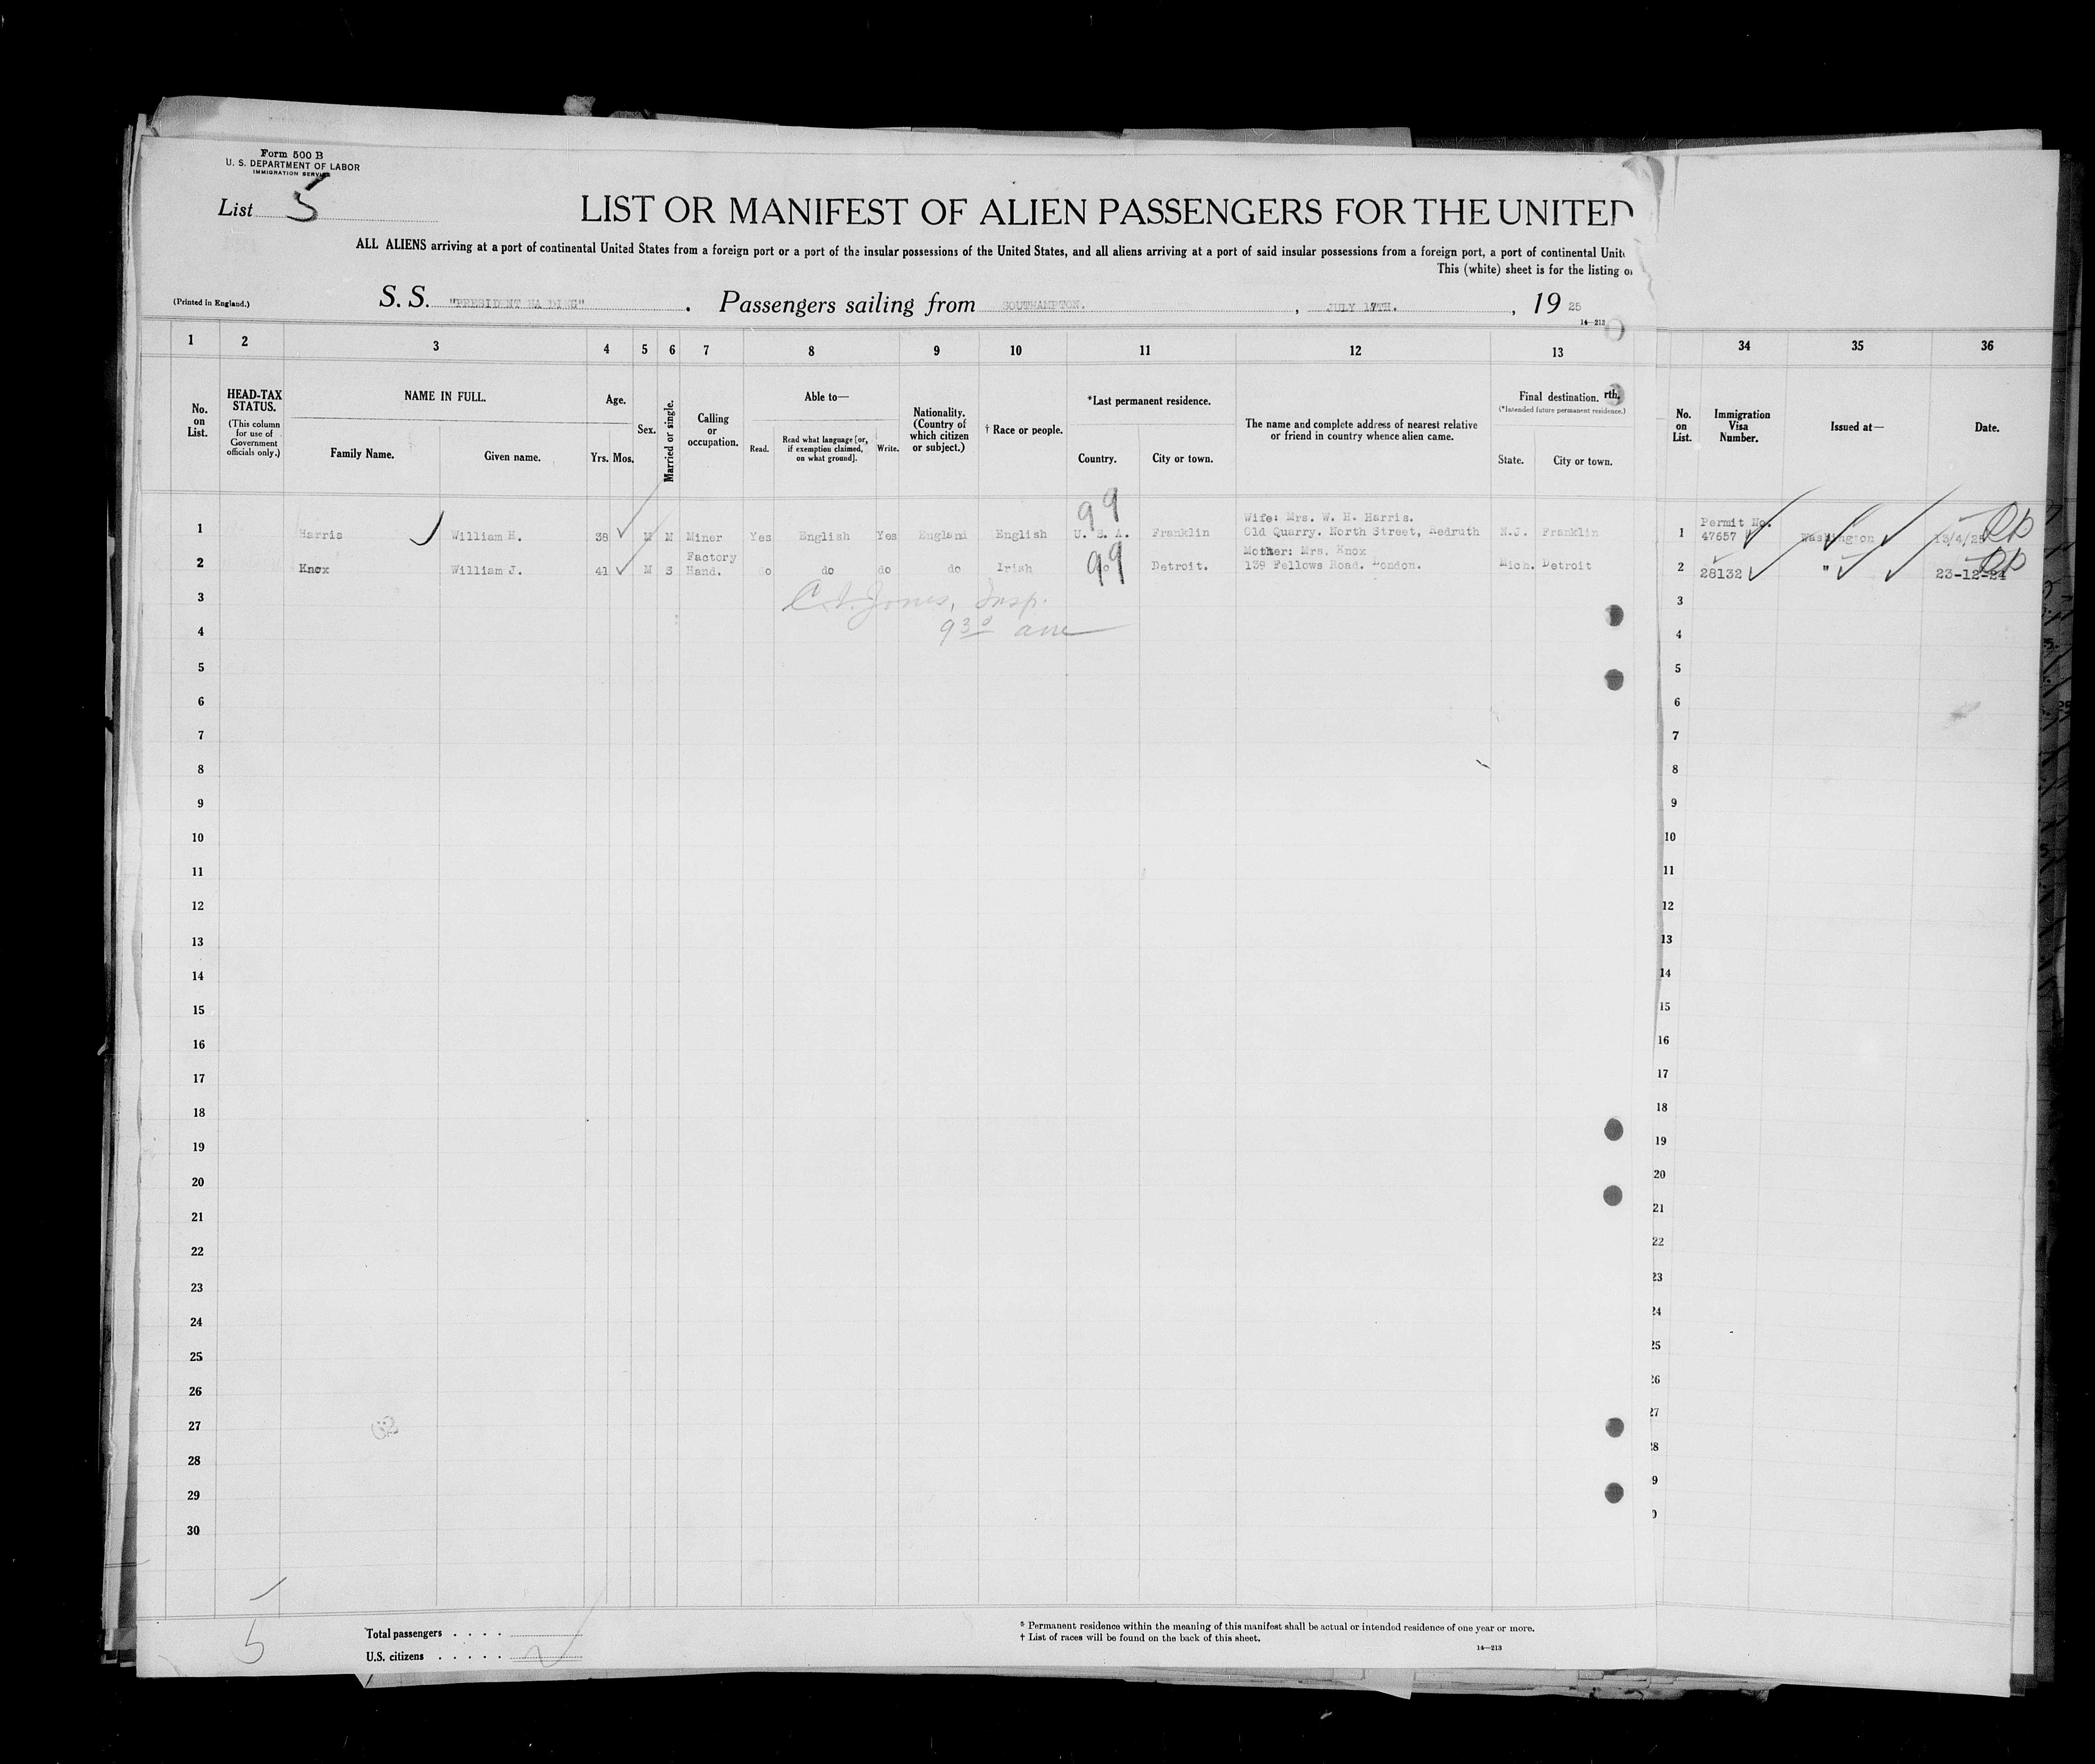 Form 500 B
U. S. DEPARTMENT OF LABOR
IMMIGRATION SERVICE
List 5
LIST OR MANIFEST OF ALIEN PASSENGERS FOR THE UNITED
ALL ALIENS arriving at a port of continental United States from a foreign port or a port of the insular possessions of the United States, and all aliens arriving at a port of said insular possessions from a foreign port, a port of continental Unit
This (white) sheet is for the listing o
(Printed in England.) S. S. "PRESIDENT HARDING" . Passengers sailing from SOUTHAMPTON. , JULY 17TH. , 19 25
14—213
1 2 3 4 5 6 7 8 9 10 11 12 13 34 35 36
No. on List.
HEAD-TAX STATUS.
(This column for use of Government officials only.)
NAME IN FULL.
Family Name. Given name.
Age.
Yrs. Mos.
Sex.
Married or single.
Calling or occupation.
Able to—
Read. Read what language [or, if exemption claimed, on what ground]. Write.
Nationality. (Country of which citizen or subject.)
† Race or people.
*Last permanent residence.
Country. City or town.
The name and complete address of nearest relative or friend in country whence alien came.
Final destination. rth.
(*Intended future permanent residence.)
State. City or town.
No. on List.
Immigration Visa Number.
Issued at—
Date.
99
Wife: Mrs. W. H. Harris. Permit No.
1 Harris William H. 38 M M Miner Yes English Yes England English U. S. A. Franklin Old Quarry. North Street, Redruth N.J. Franklin 1 47657 Washington 13/4/25
Factory 99 Mother: Mrs. Knox
2 Knox William J. 41 M S Hand. do do do do Irish do Detroit. 139 Fellows Road. London. Mich. Detroit 2 28132 " 23-12-24
3 Jones, Insp. 3
4 9 30 am 4
5 5
6 6
7 7
8 8
9 9
10 10
11 11
12 12
13 13
14 14
15 15
16 16
17 17
18 18
19 19
20 20
21 21
22 22
23 23
24 24
25 25
26 26
27 27
28 28
29 9
30 0
5
Total passengers . . . .
U.S. citizens . . . . .
* Permanent residence within the meaning of this manifest shall be actual or intended residence of one year or more.
† List of races will be found on the back of this sheet.
14—213